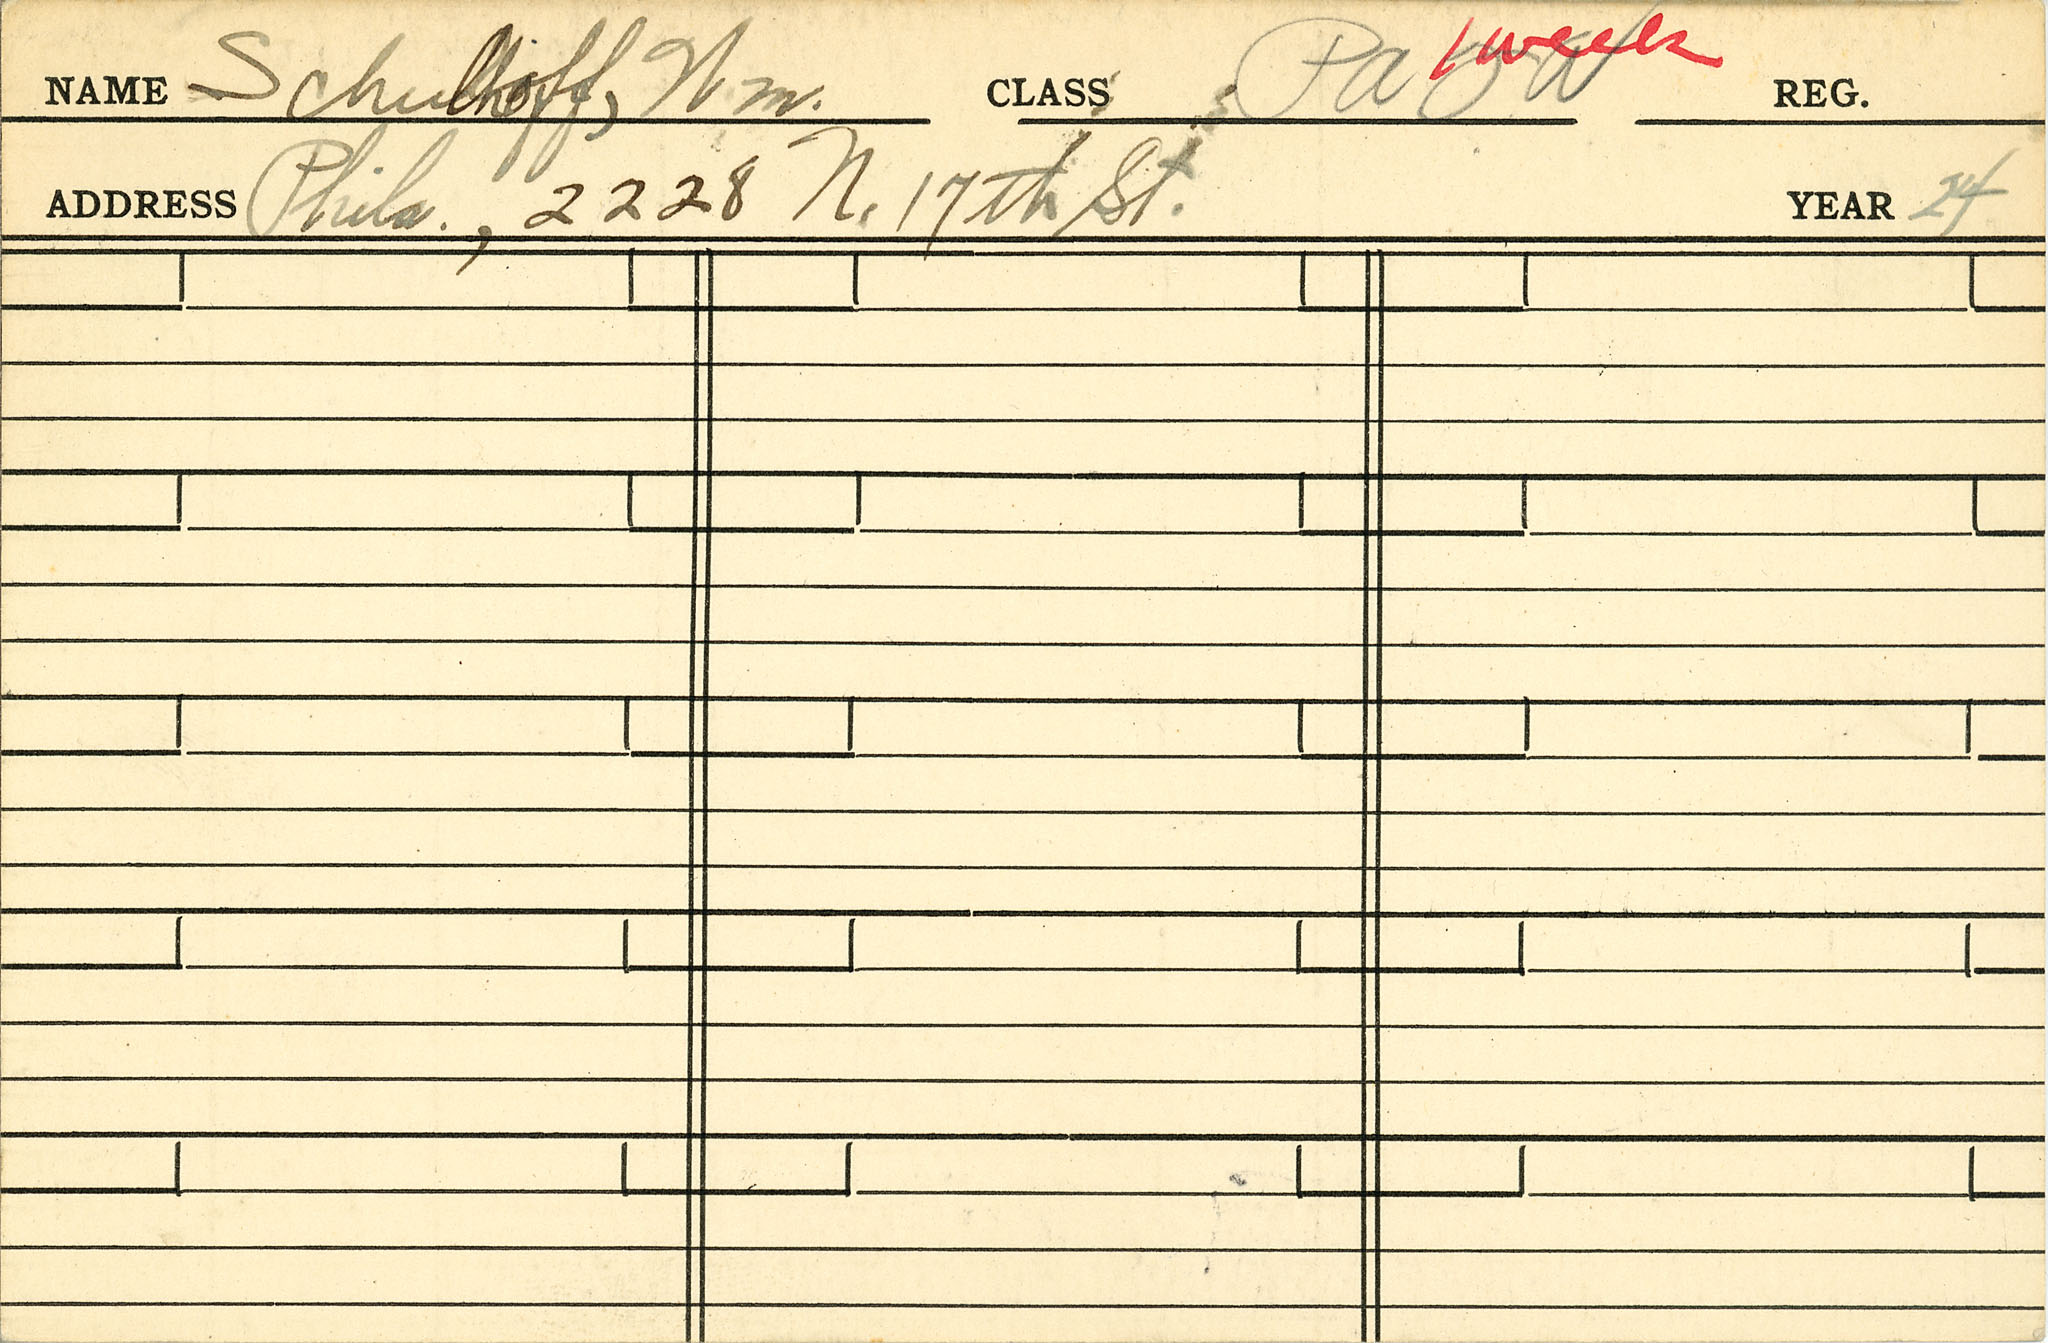 NAME Schulhoff, Wm. CLASS 1 week REG.
ADDRESS Phila., 2228 N. 17th St. YEAR 24